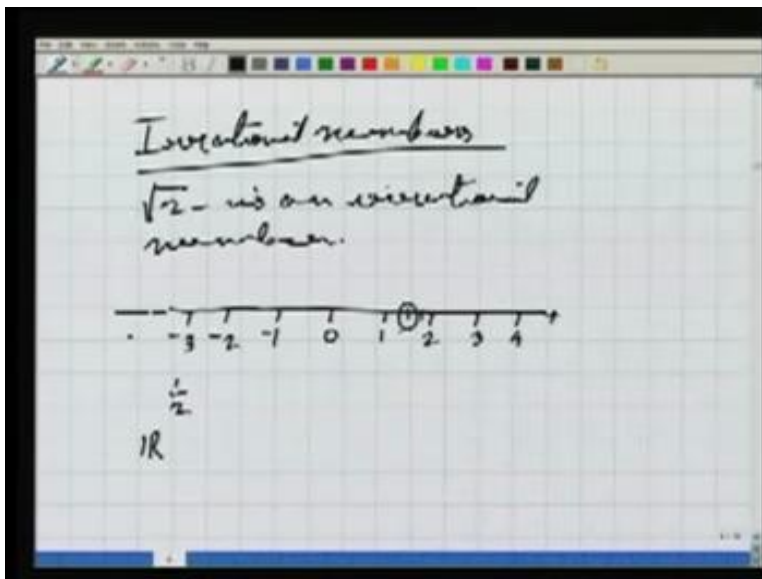 Irrational numbers
√2 - is an irrational
number.
-3 -2 -1 0 1 2 3 4
1/2
IR